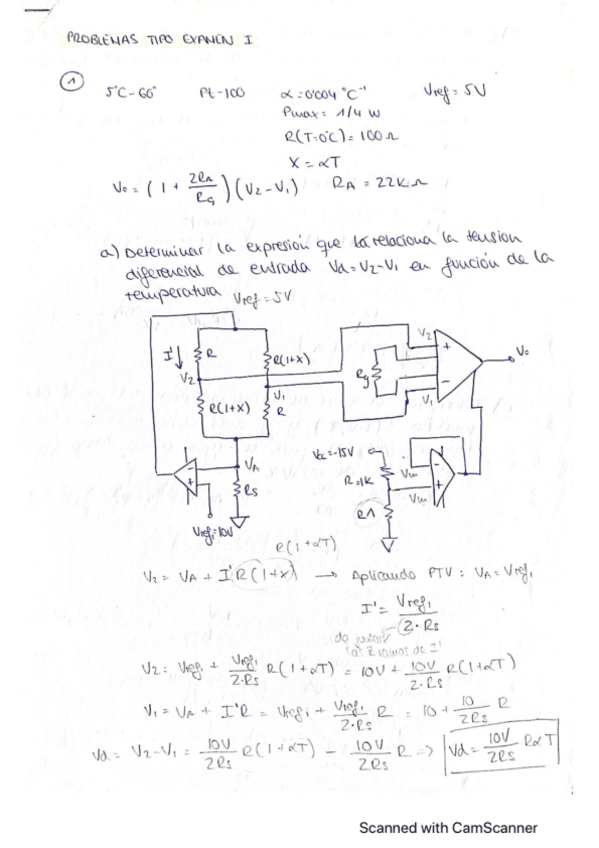 PROBLEMAS TIPO EXAMEN I
① 5°C-60° Pt-100 α=0'004 °C⁻¹ Vref=5V
Pmax= 1/4 W
R(T=0°C)=100Ω
X=αT
Vo=(1+ 2RA/RG)(V2-V1) RA=22KΩ
a) Determinar la expresión que relaciona la tensión
diferencial de entrada Vd=V2-V1 en función de la
temperatura
Vref=5V
I'↓ R R(1+X) V2 + Vo
V2 Rg
R(1+X) V1 R - V1
VA Vcc=-15V
- + RS R=1K Vin
R1 Vin
Vref1=10V
R(1+αT)
V2=VA+I'R(1+X) → Aplicando PTV: VA=Vref1
I'= Vref1/2·RS
V2=Vref1+ Vref1/2·RS R(1+αT) = 10V+ 10V/2·RS R(1+αT)
V1=VA+I'R=Vref1+ Vref1/2·RS R = 10+ 10/2RS R
Vd=V2-V1= 10V/2RS R(1+αT) - 10V/2RS R => Vd= 10V/2RS RαT
Scanned with CamScanner